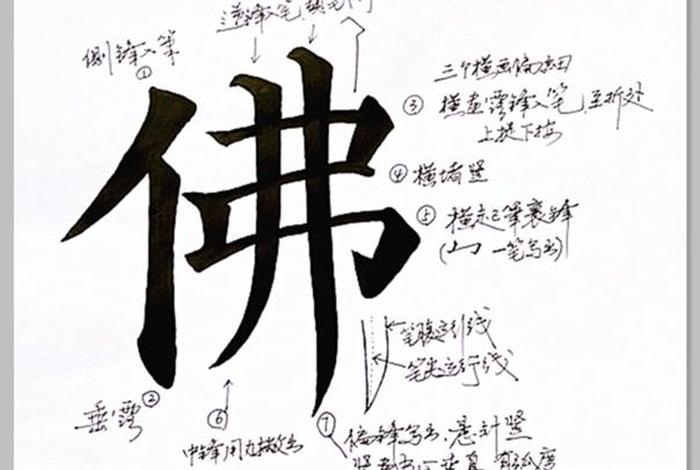 逆锋入笔
侧锋入笔
①
三个横画偏
③ 横画露锋入笔,至折处
上提下按
④ 横堵竖
⑤ 横走己笔裹锋
(一笔写出)
佛
笔腹运行线
笔尖运行线
垂露②
⑥
中锋用力撇出
⑦ 偏锋写出,悬针竖